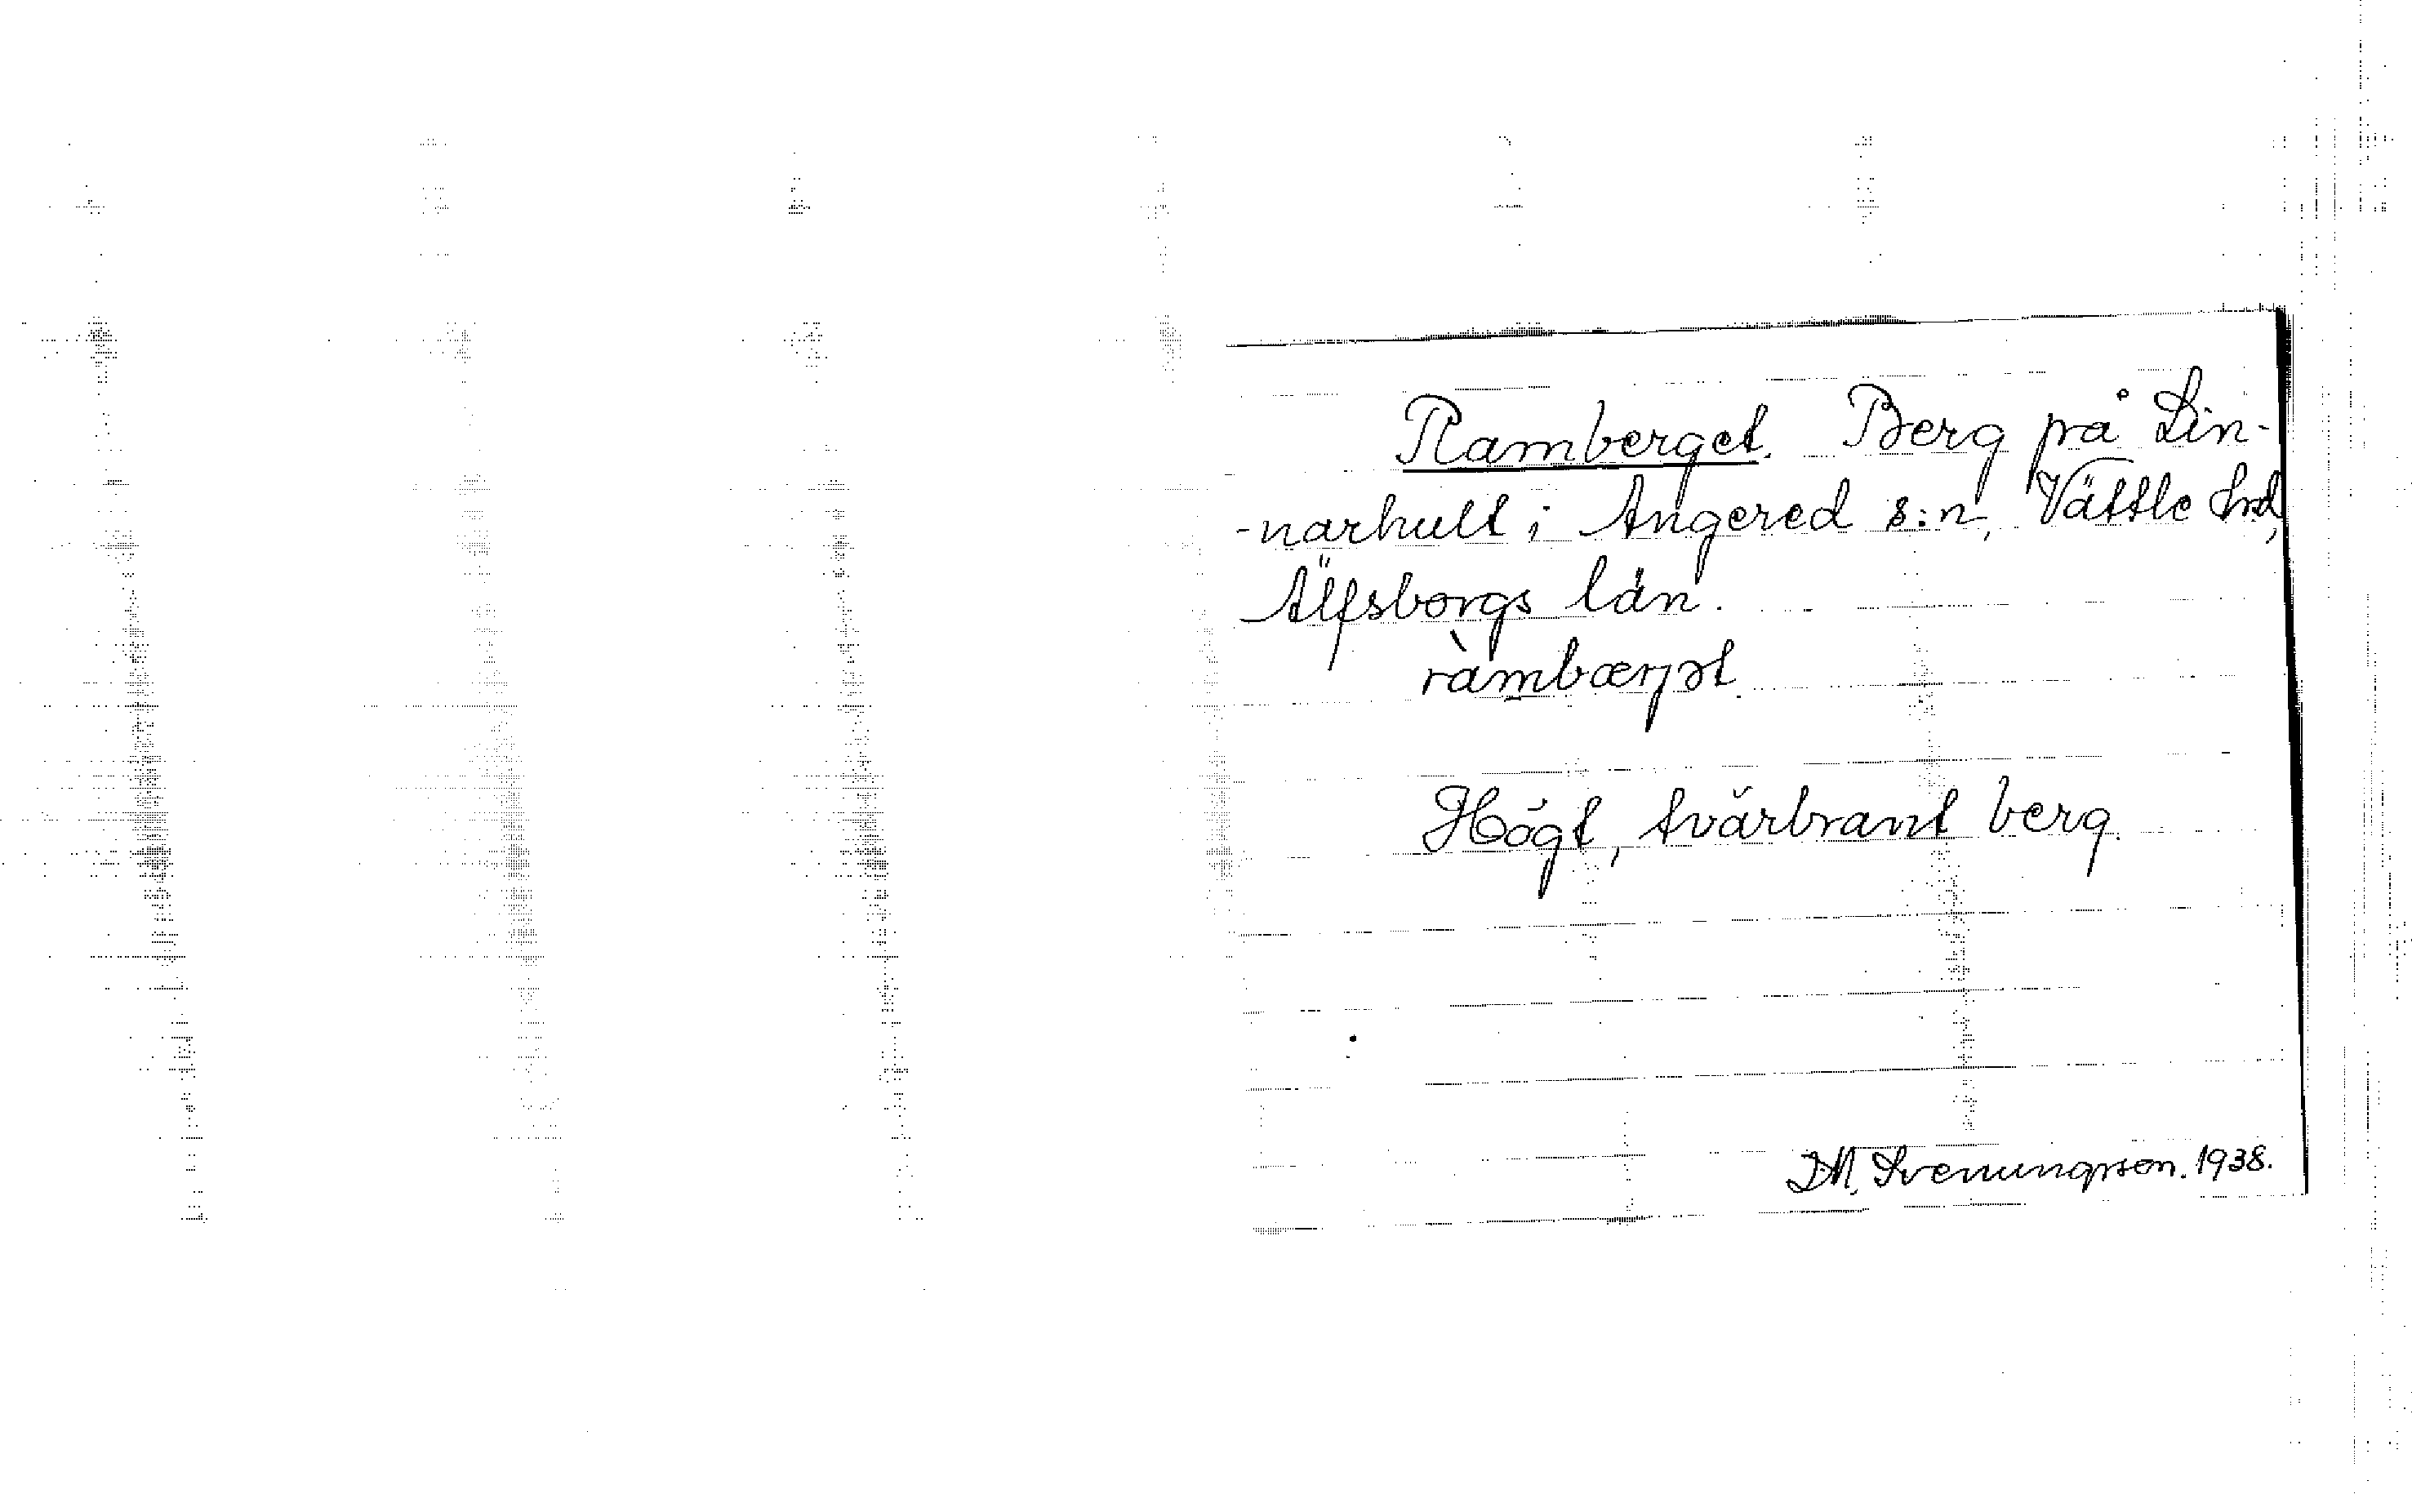 Ramberget. Berg på Lin-
-narhult i Angered s:n, Vättle hd,
Älfsborgs län.
ràmbærjət.
Högt, tvärbrant berg.
D.M. Svenungsson. 1938.